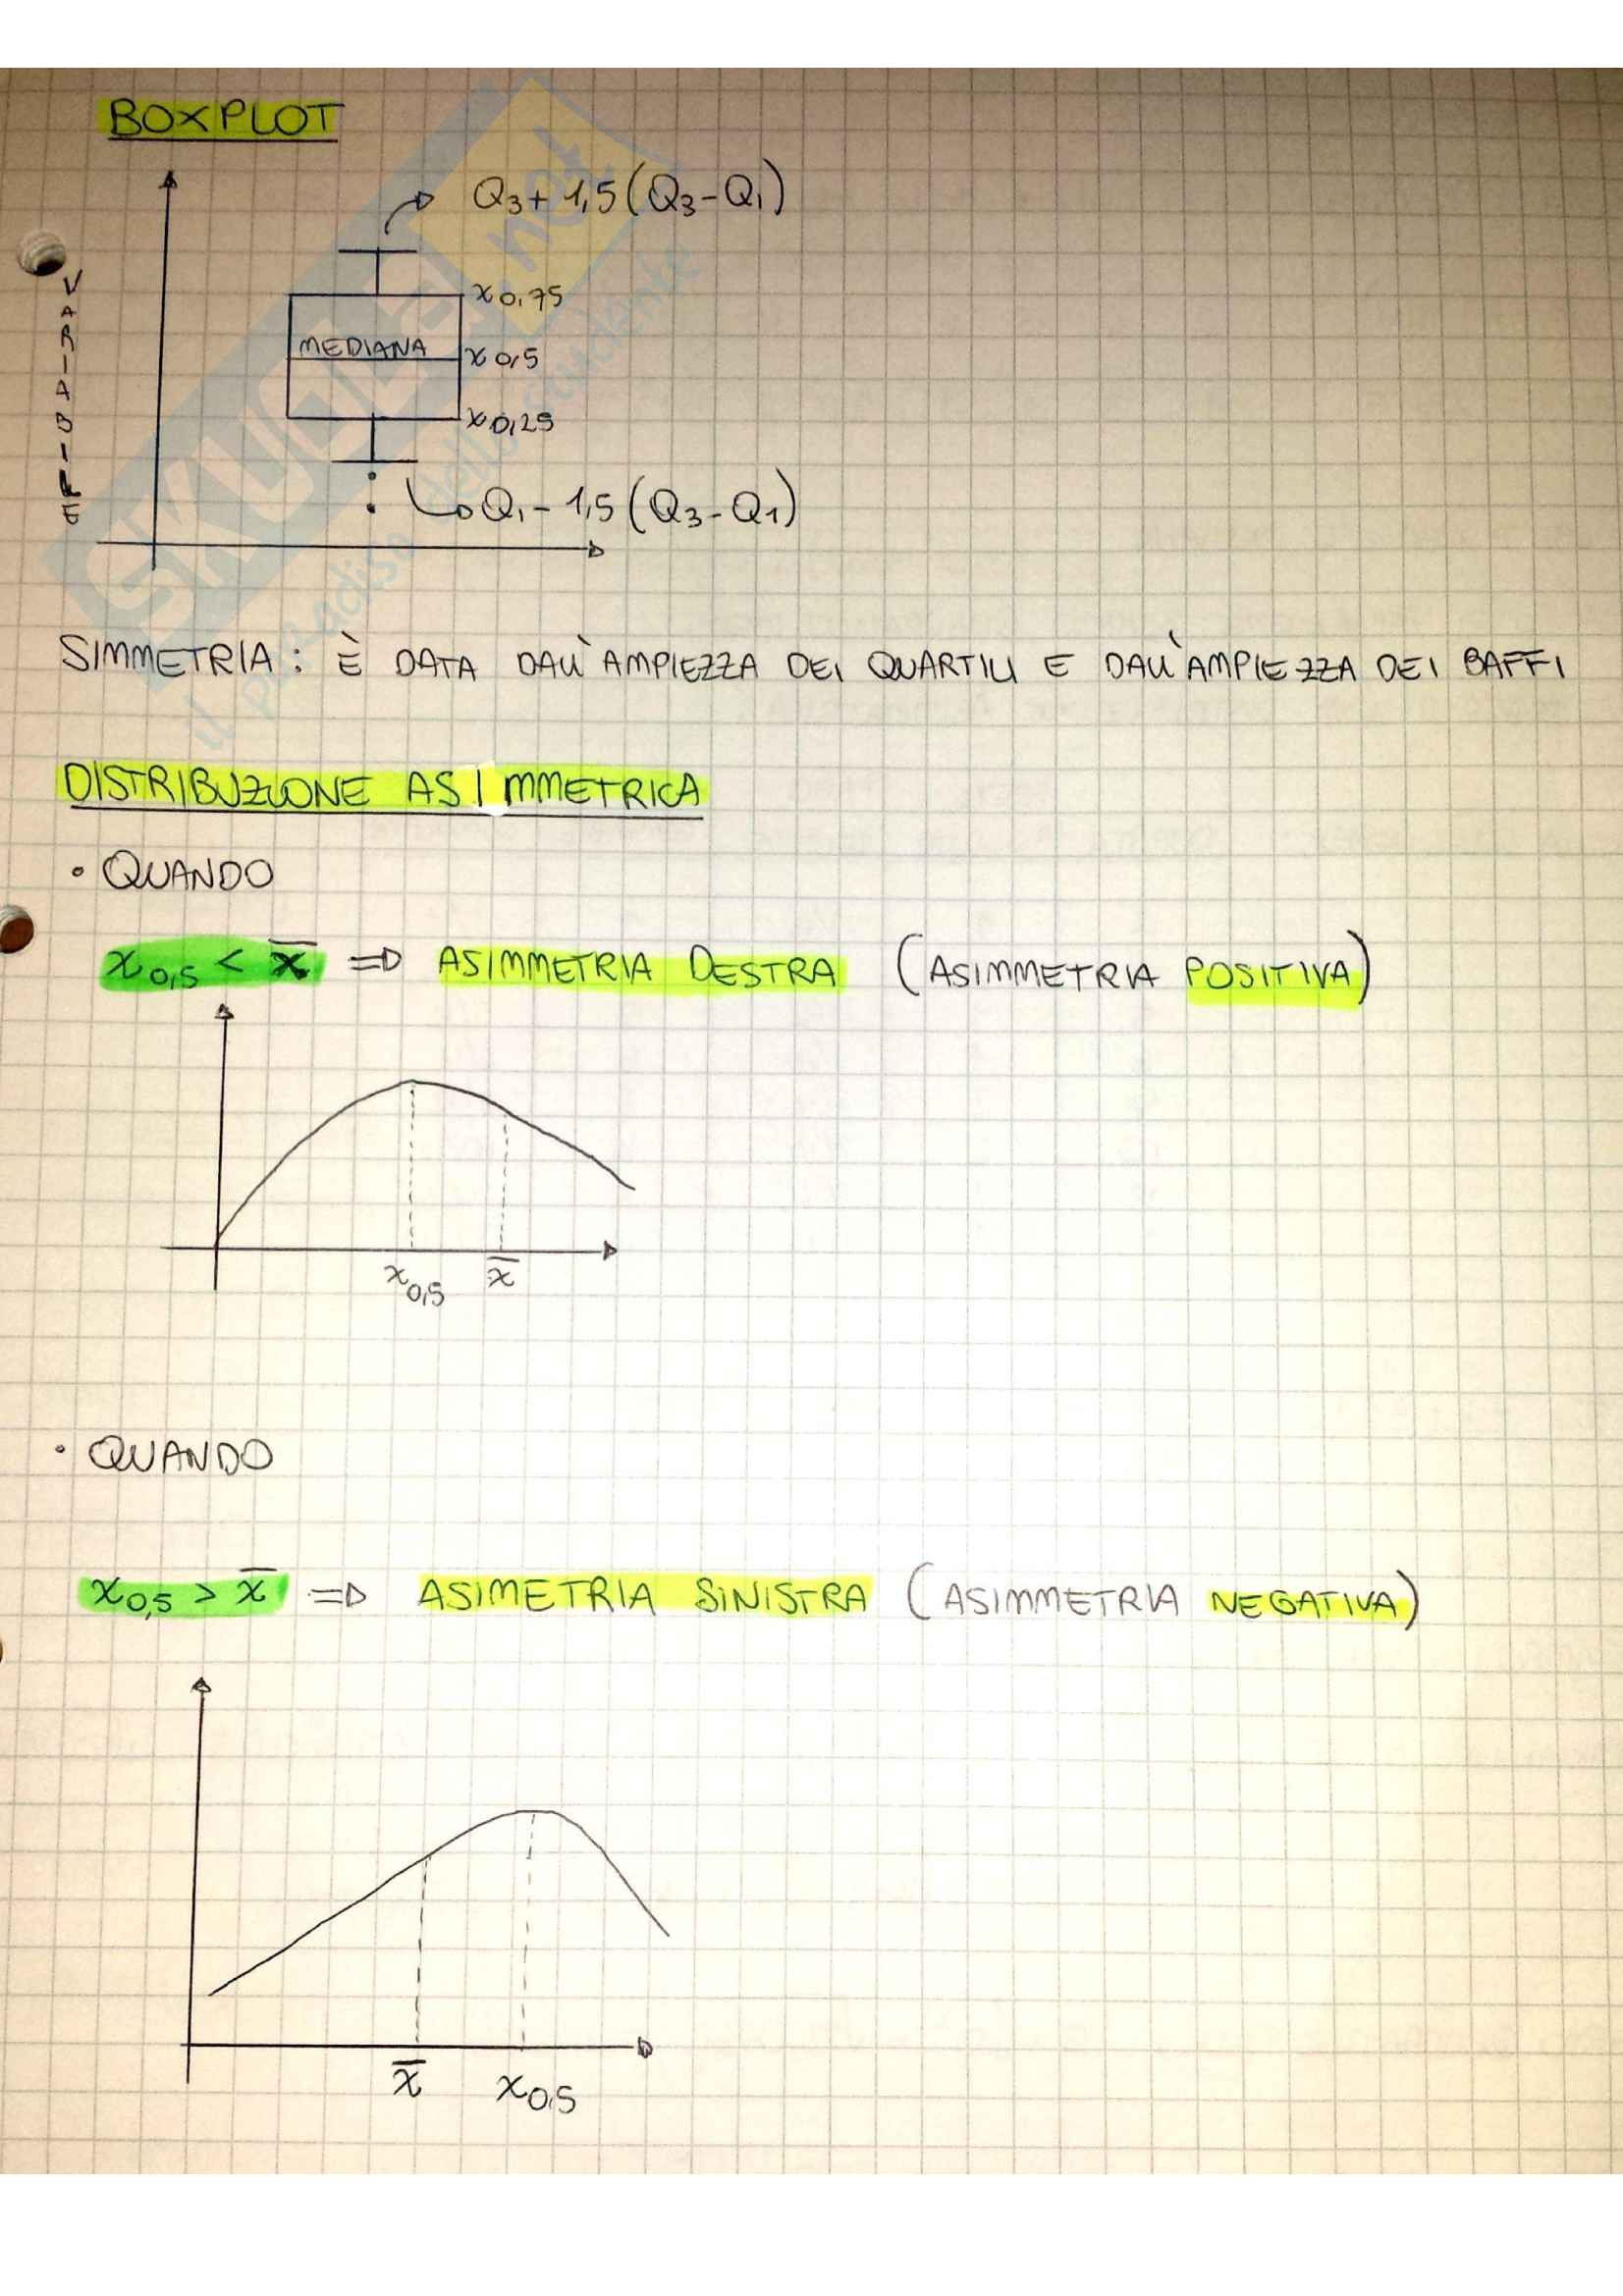 BOXPLOT
Q3+ 1,5(Q3-Q1)
x0,75
MEDIANA
x0,5
x0,25
Q1- 1,5(Q3-Q1)
SKUOLA.net
il paradiso dello studente
SIMMETRIA: È DATA DALL'AMPIEZZA DEI QUARTILI E DALL'AMPIEZZA DEI BAFFI
DISTRIBUZIONE ASIMMETRICA
• QUANDO
x0,5 < x̄ ⇒ ASIMMETRIA DESTRA (ASIMMETRIA POSITIVA)
x0,5 x̄
• QUANDO
x0,5 > x̄ ⇒ ASIMETRIA SINISTRA (ASIMMETRIA NEGATIVA)
x̄ x0,5